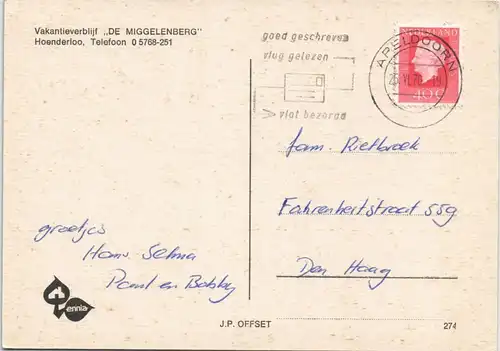 Vakantieverblijf „DE MIGGELENBERG"
Hoenderloo, Telefoon 0 5768-251
goed geschreven
vlug gelezen
vlot bezorgd
APELDOORN
NEDERLAND
40c
fam. Rietbroek
Fahrenheitstraat 559
Den Haag
groetjes
Hans Selma
Paul en Bobby
ennia
J.P. OFFSET
274